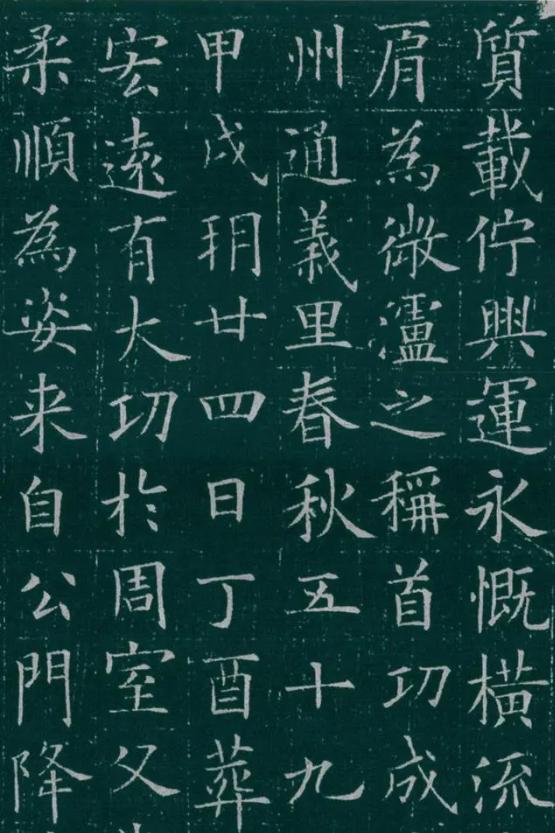 質載佇興運永慨橫流
肩為微瀘之稱首功成
州通義里春秋五十九
甲戌玥廿四日丁酉葬
宏遠有大功於周室父
柔順為姿来自公門降